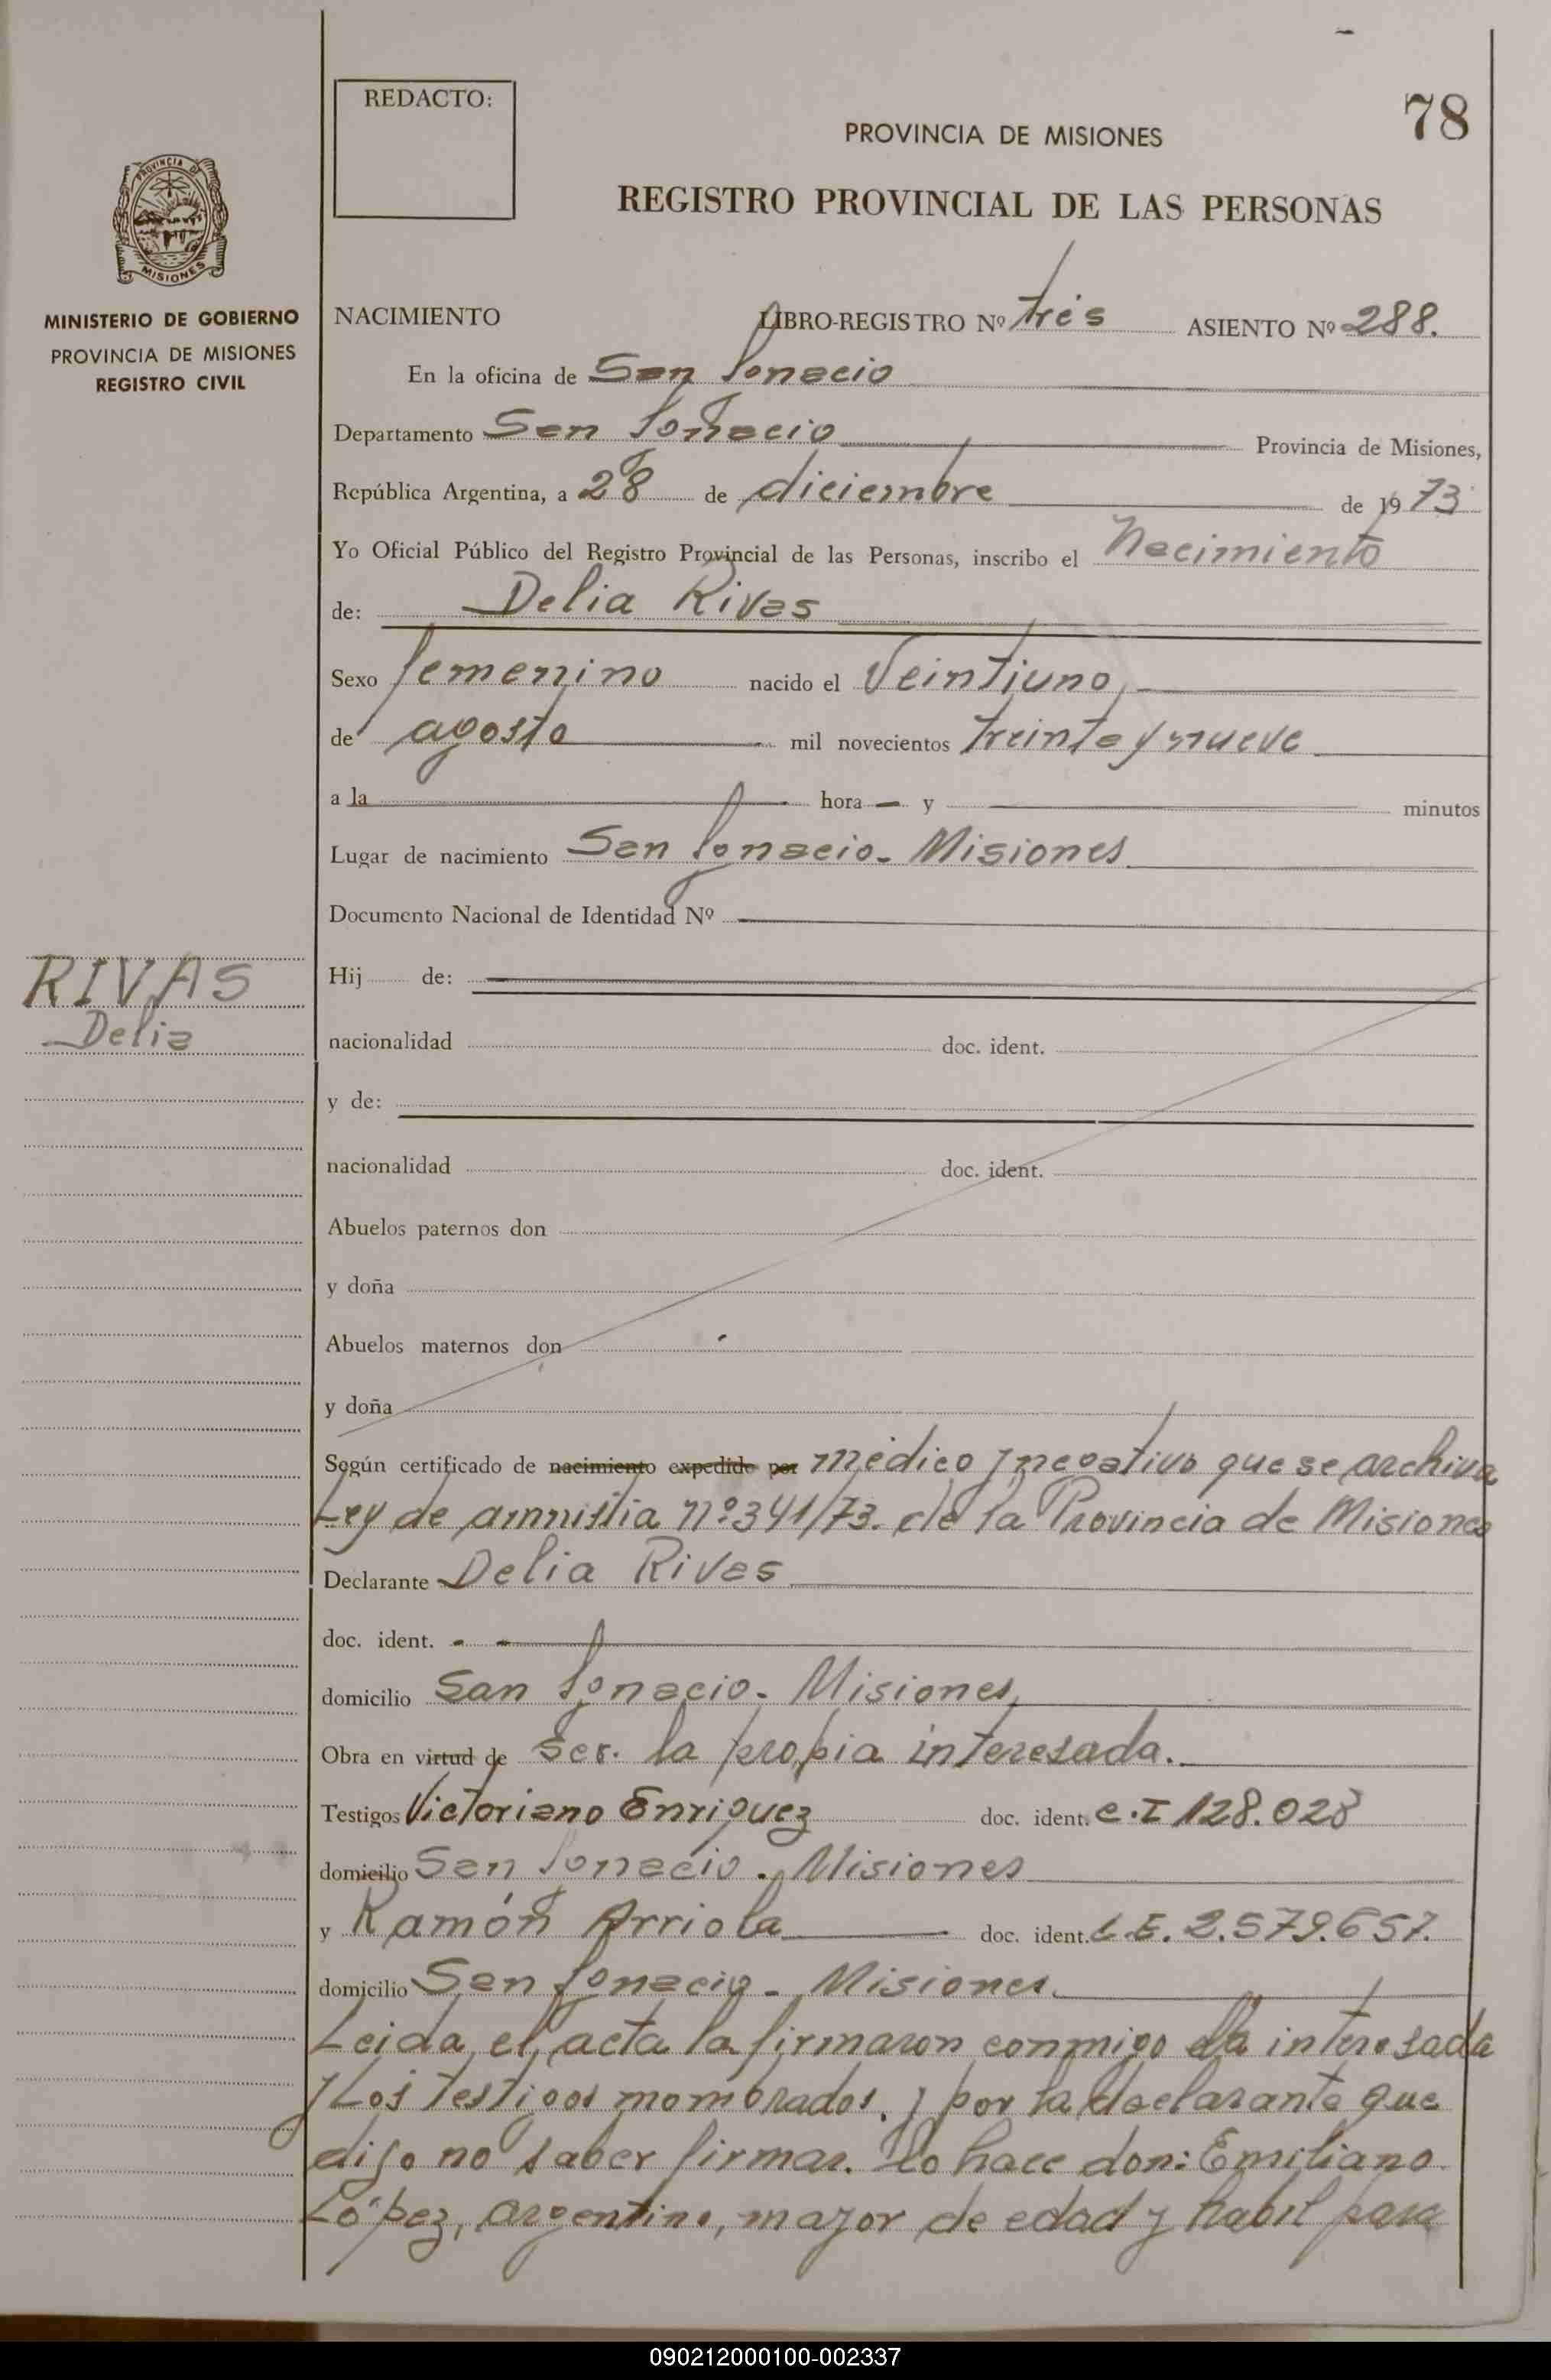 REDACTO:
78
PROVINCIA DE MISIONES
REGISTRO PROVINCIAL DE LAS PERSONAS
PROVINCIA DE
MISIONES
MINISTERIO DE GOBIERNO
PROVINCIA DE MISIONES
REGISTRO CIVIL
NACIMIENTO LIBRO-REGISTRO Nº tres ASIENTO Nº 288.
En la oficina de San Ignacio
Departamento San Ignacio Provincia de Misiones,
República Argentina, a 28 de diciembre de 1973
Yo Oficial Público del Registro Provincial de las Personas, inscribo el Nacimiento
de: Delia Rivas
Sexo femenino nacido el Veintiuno,
de agosto mil novecientos treinta y nueve
a la hora — y minutos
Lugar de nacimiento San Ignacio. Misiones
Documento Nacional de Identidad Nº
RIVAS
Delia
Hij de:
nacionalidad doc. ident.
y de:
nacionalidad doc. ident.
Abuelos paternos don
y doña
Abuelos maternos don
y doña
Según certificado de nacimiento expedido por médico y negativo que se archiva
Ley de amnistia nº 341/73. de la Provincia de Misiones
Declarante Delia Rivas
doc. ident. - -
domicilio San Ignacio. Misiones,
Obra en virtud de Ser. la propia interesada.
Testigos Victoriano Enriquez doc. ident. C.I 128.028
domicilio San Ignacio. Misiones
y Ramón Arriola doc. ident. L.E. 2.579.657.
domicilio San Ignacio - Misiones.
Leida, el, acta la firmaron conmigo la interesada
y Los testigos nombrados. y por la declarante que
dijo no saber firmar. Lo hace don: Emiliano.
López, argentino, mayor de edad y habil para
090212000100-002337